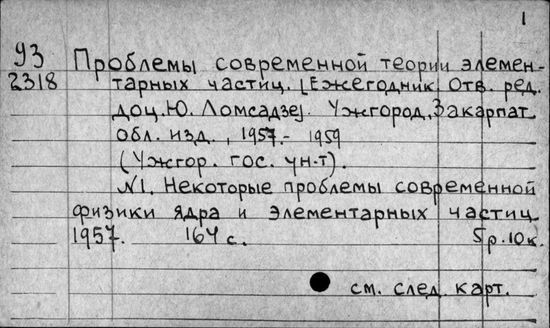 1
93 Проблемы современной теории элемен-
2318 тарных частиц. [Ежегодник. Отв. ред.
доц. Ю. Ломсадзе]. Ужгород, Закарпат.
обл. изд., 1957.- 1959
(Ужгор. гос. ун-т).
N1. Некоторые проблемы современной
физики ядра и элементарных частиц.
1957. 164 с. 5р.10к.
см. след. карт.